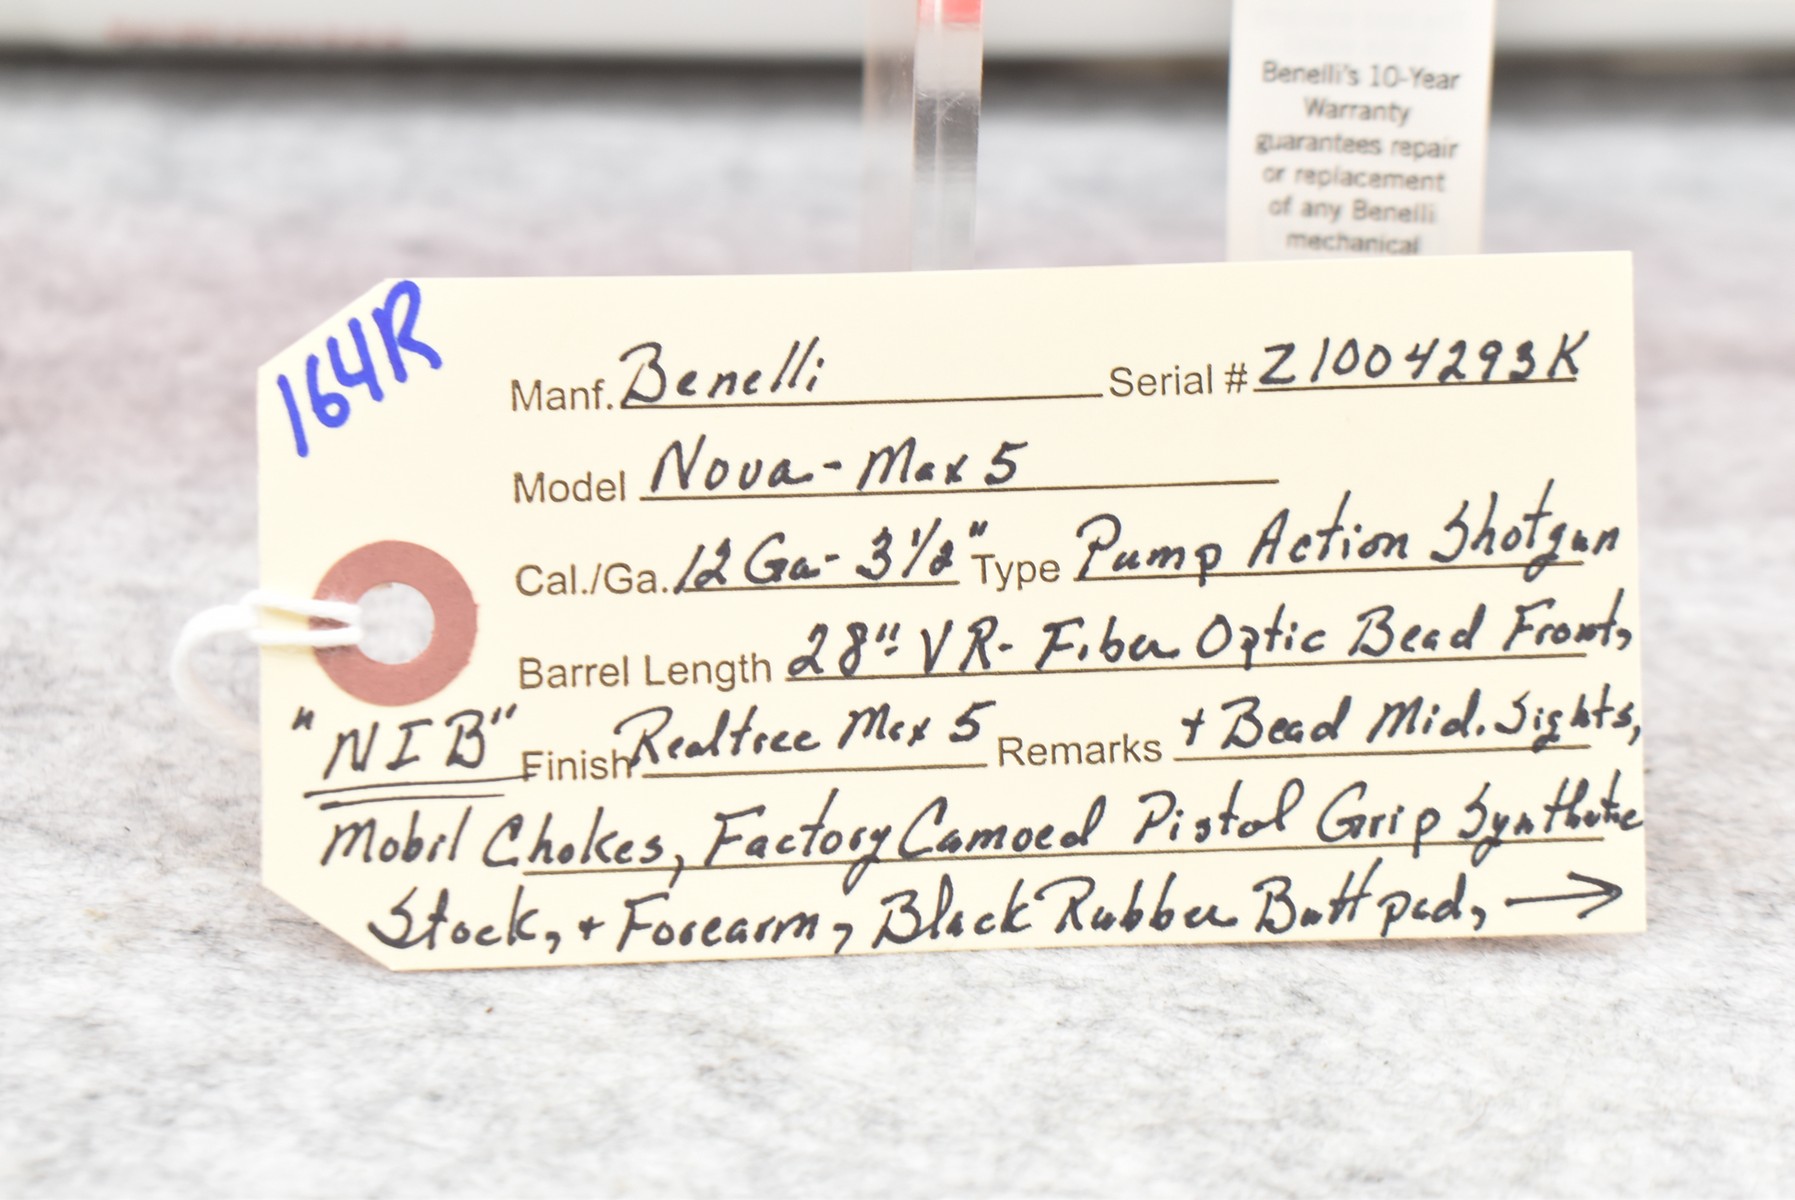 Benelli's 10-Year
Warranty
guarantees repair
or replacement
of any Benelli
mechanical
164R
Manf. Benelli Serial # Z1004293K
Model Nova - Max 5
Cal./Ga. 12 Ga - 3 1/2" Type Pump Action Shotgun
Barrel Length 28" VR - Fiber Optic Bead Front,
"NIB" Finish Realtree Max 5 Remarks + Bead Mid. Sights,
Mobil Chokes, Factory Camoed Pistol Grip Synthetic
Stock, + Forearm, Black Rubber Butt pad, →